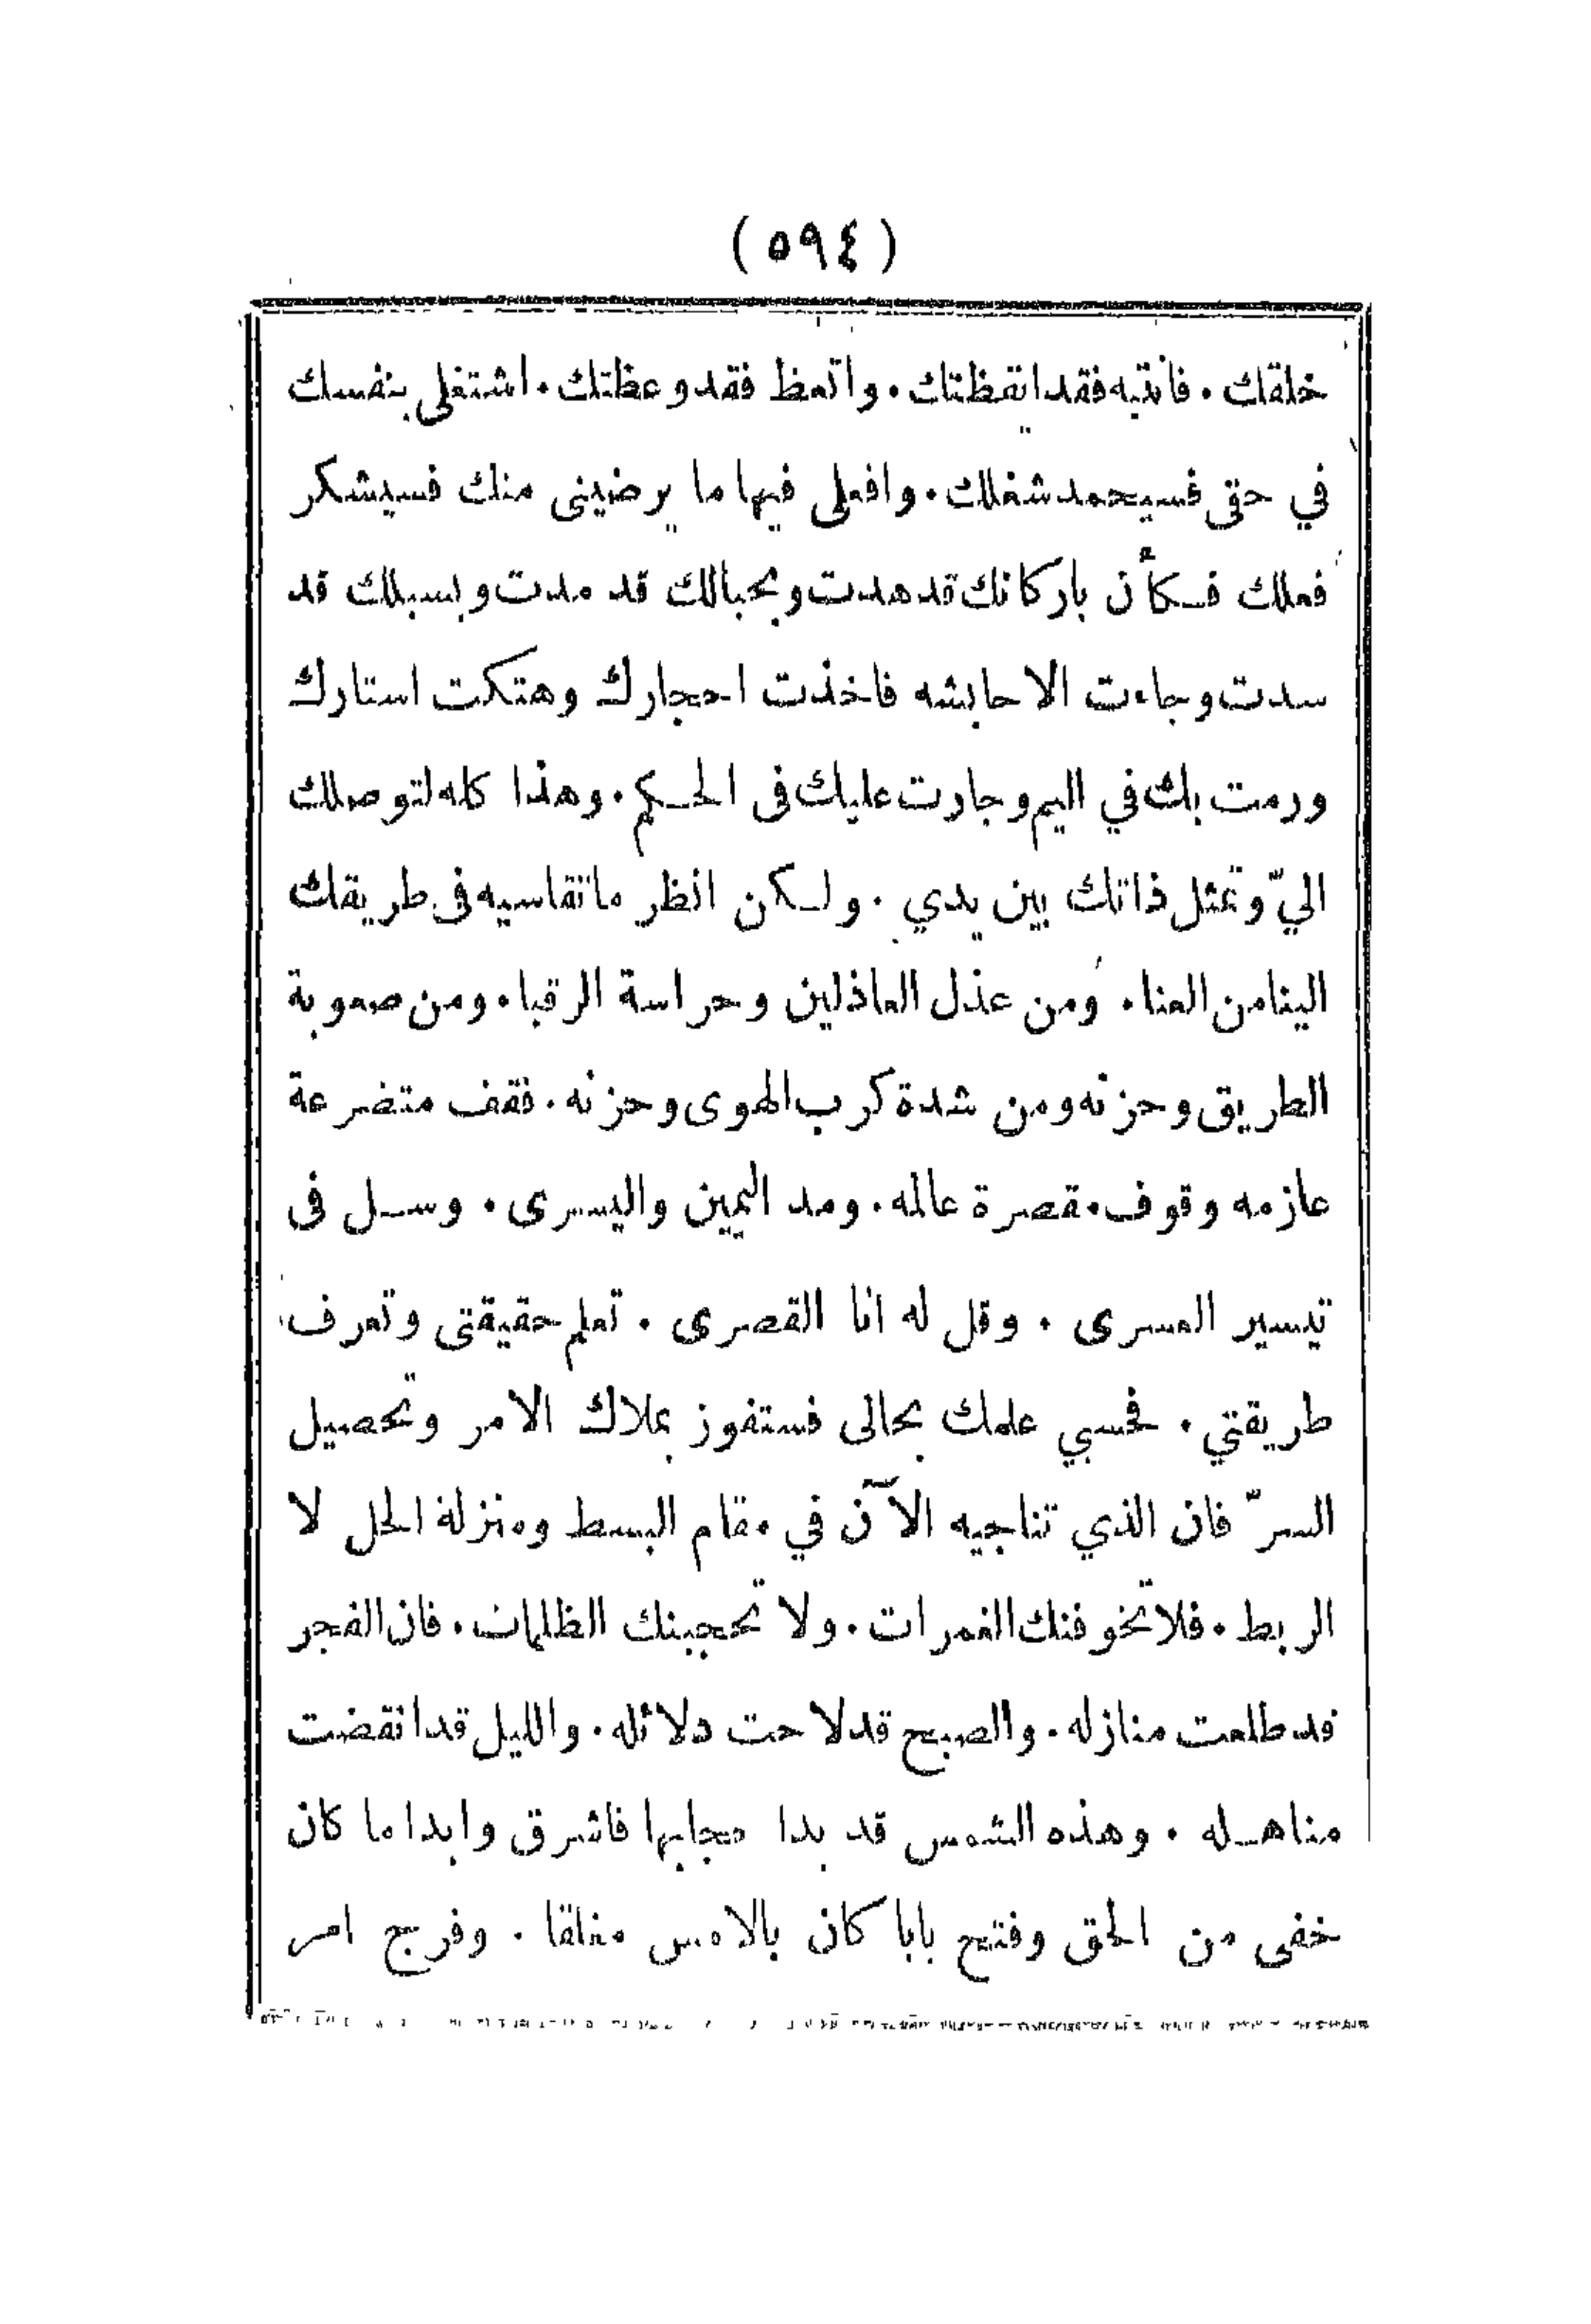 (٥٩٤)
خلقك . فانتبه فقد ايقظتك . واتعظ فقد وعظتك . اشتغلي بنفسك
في حقى فسيحمد شغلك . وافعلى فيها ما يرضينى منك فسيشكر
فعلك فكأن باركانك قد هدت وبحبالك قد مدت وبسبلك قد
سدت وجاءت الاحابشه فاخذت احجارك وهتكت استارك
ورمت بك في اليم وجارت عليك فى الحكم . وهذا كله لتوصلك
اليّ وتمثل ذاتك بين يدي . ولكن انظر ما تقاسيه فى طريقك
الينا من العناء ومن عذل العاذلين وحراسة الرقباء ومن صعوبة
الطريق وحزنه ومن شدة كرب الهوى وحزنه . فقف متضرعة
عازمه وقوف مقصرة عالمه . ومد اليمين واليسرى . وسل فى
تيسير العسرى . وقل له انا القصرى . تعلم حقيقتى وتعرف
طريقتي . فحسبي علمك بحالى فستفوز بملاك الامر وتحصيل
السرّ فان الذي تناجيه الآن في مقام البسط ومنزلة الحل لا
الربط . فلا تخوفنك الغمرات . ولا تحجبنك الظلمات . فان الفجر
قد طلعت منازله . والصبح قد لاحت دلائله . والليل قد انقضت
مناهله . وهذه الشمس قد بدا حجابها فاشرق وابدا ما كان
خفى من الحق وفتح بابا كان بالامس مغلقا . وفرج امر